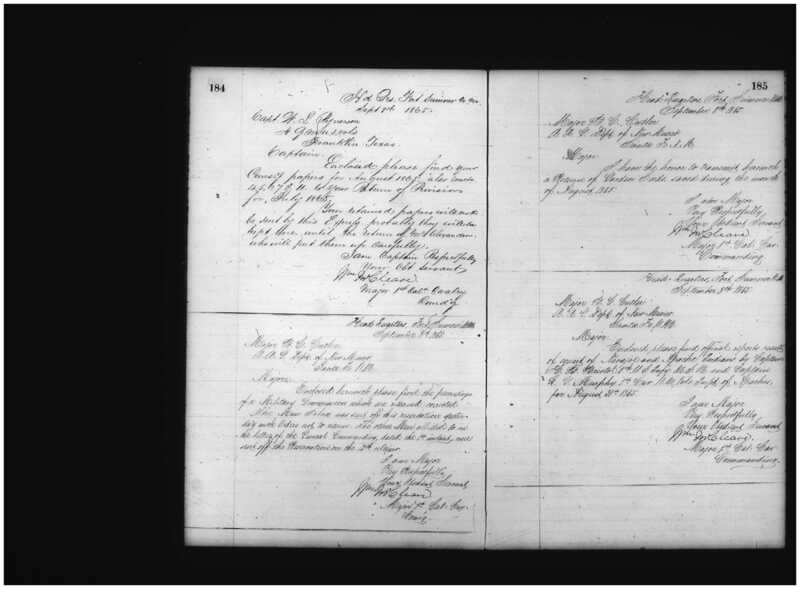 184
Hd Qrs. Fort Sumner N. M.
Sept 8th 1865.
Capt W. L. Rynerson
A Q M U.S. Vols
Franklin Texas
Captain
Enclosed please find your
papers for August 1865, also
your Return of Provisions
for July 1865
Your retained papers will not
be sent by this Express, probably they will be
kept here until the return of Alexander
who will put them up carefully.
I am Captain Respectfully
Your Obt Servant
Wm McCleave
Major 1st Cal. Cavalry
Comd'g
Head Quarters, Fort Sumner N.M.
September 8th 1865
Major B. C. Cutler
A. A. G. Dept. of New Mexico
Santa Fe N.M.
Major
Enclosed herewith please find the proceedings
of a Military Commission
sent off this reservation
with orders not to return. alluded to in
the letter of the General Commanding, dated the inst,
sent off the Reservation on the
I am Major
Very Respectfully
Your Obedient Servant
Wm McCleave
Major 1st Cal. Cav
Comdg
185
Head Quarters, Fort Sumner N.M.
September 8th 1865
Major B. C. Cutler
A. A. G. Dept of New Mexico
Santa Fe N.M.
Major
I have the honor to transmit herewith
a Return of issued during the month
of August 1865.
I am Major
Very Respectfully
Your Obedient Servant
Wm McCleave
Major 1st Cal. Cav
Commanding
Head Quarters, Fort Sumner N.M.
September 8th 1865
Major B. C. Cutler
A. A. G. Dept. of New Mexico
Santa Fe, N.M.
Major
Enclosed please find official reports
of count of Navajo and Apache Indians by Captain
Bristol 5th U.S. Infy and Captain
L. G. Murphy 1st Cav N.M. Vols Supt. of Apaches,
for August 31st 1865.
I am Major
Very Respectfully
Your Obedient Servant
Wm McCleave
Major 1st Cal. Cav
Commanding